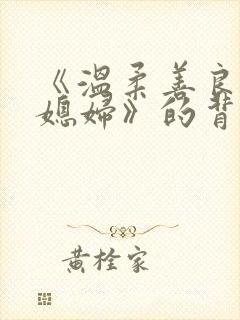 《温柔善良
媳妇》的背
黄栓家